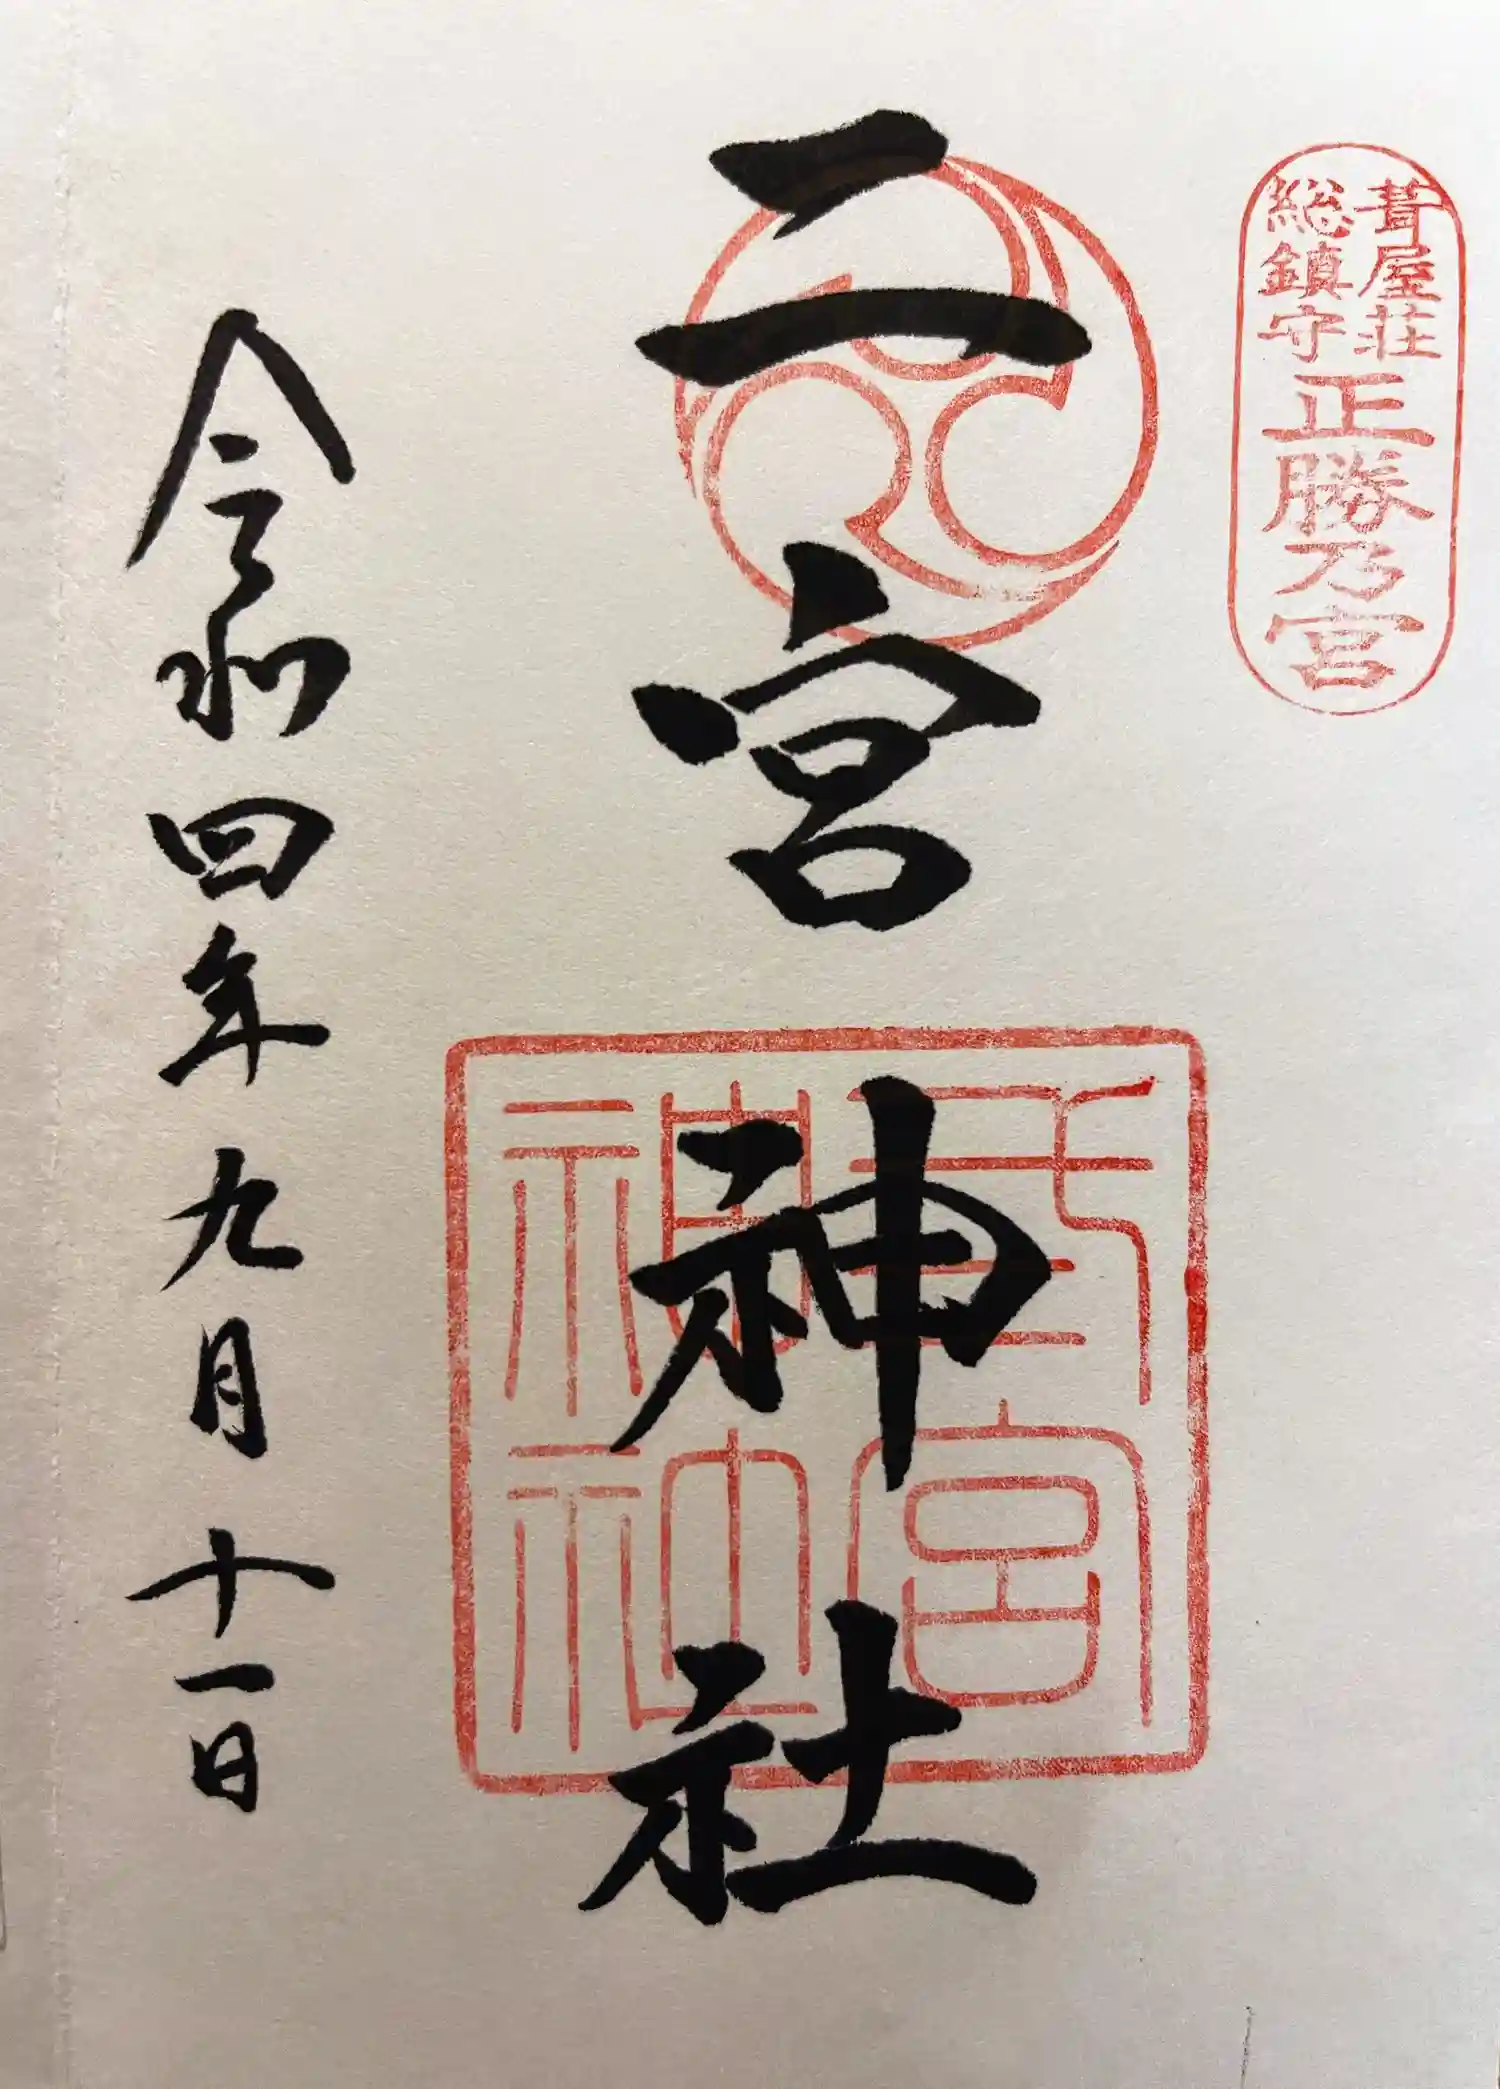 葺屋荘
総鎮守
正勝乃宮
二宮神社
令和四年九月十一日